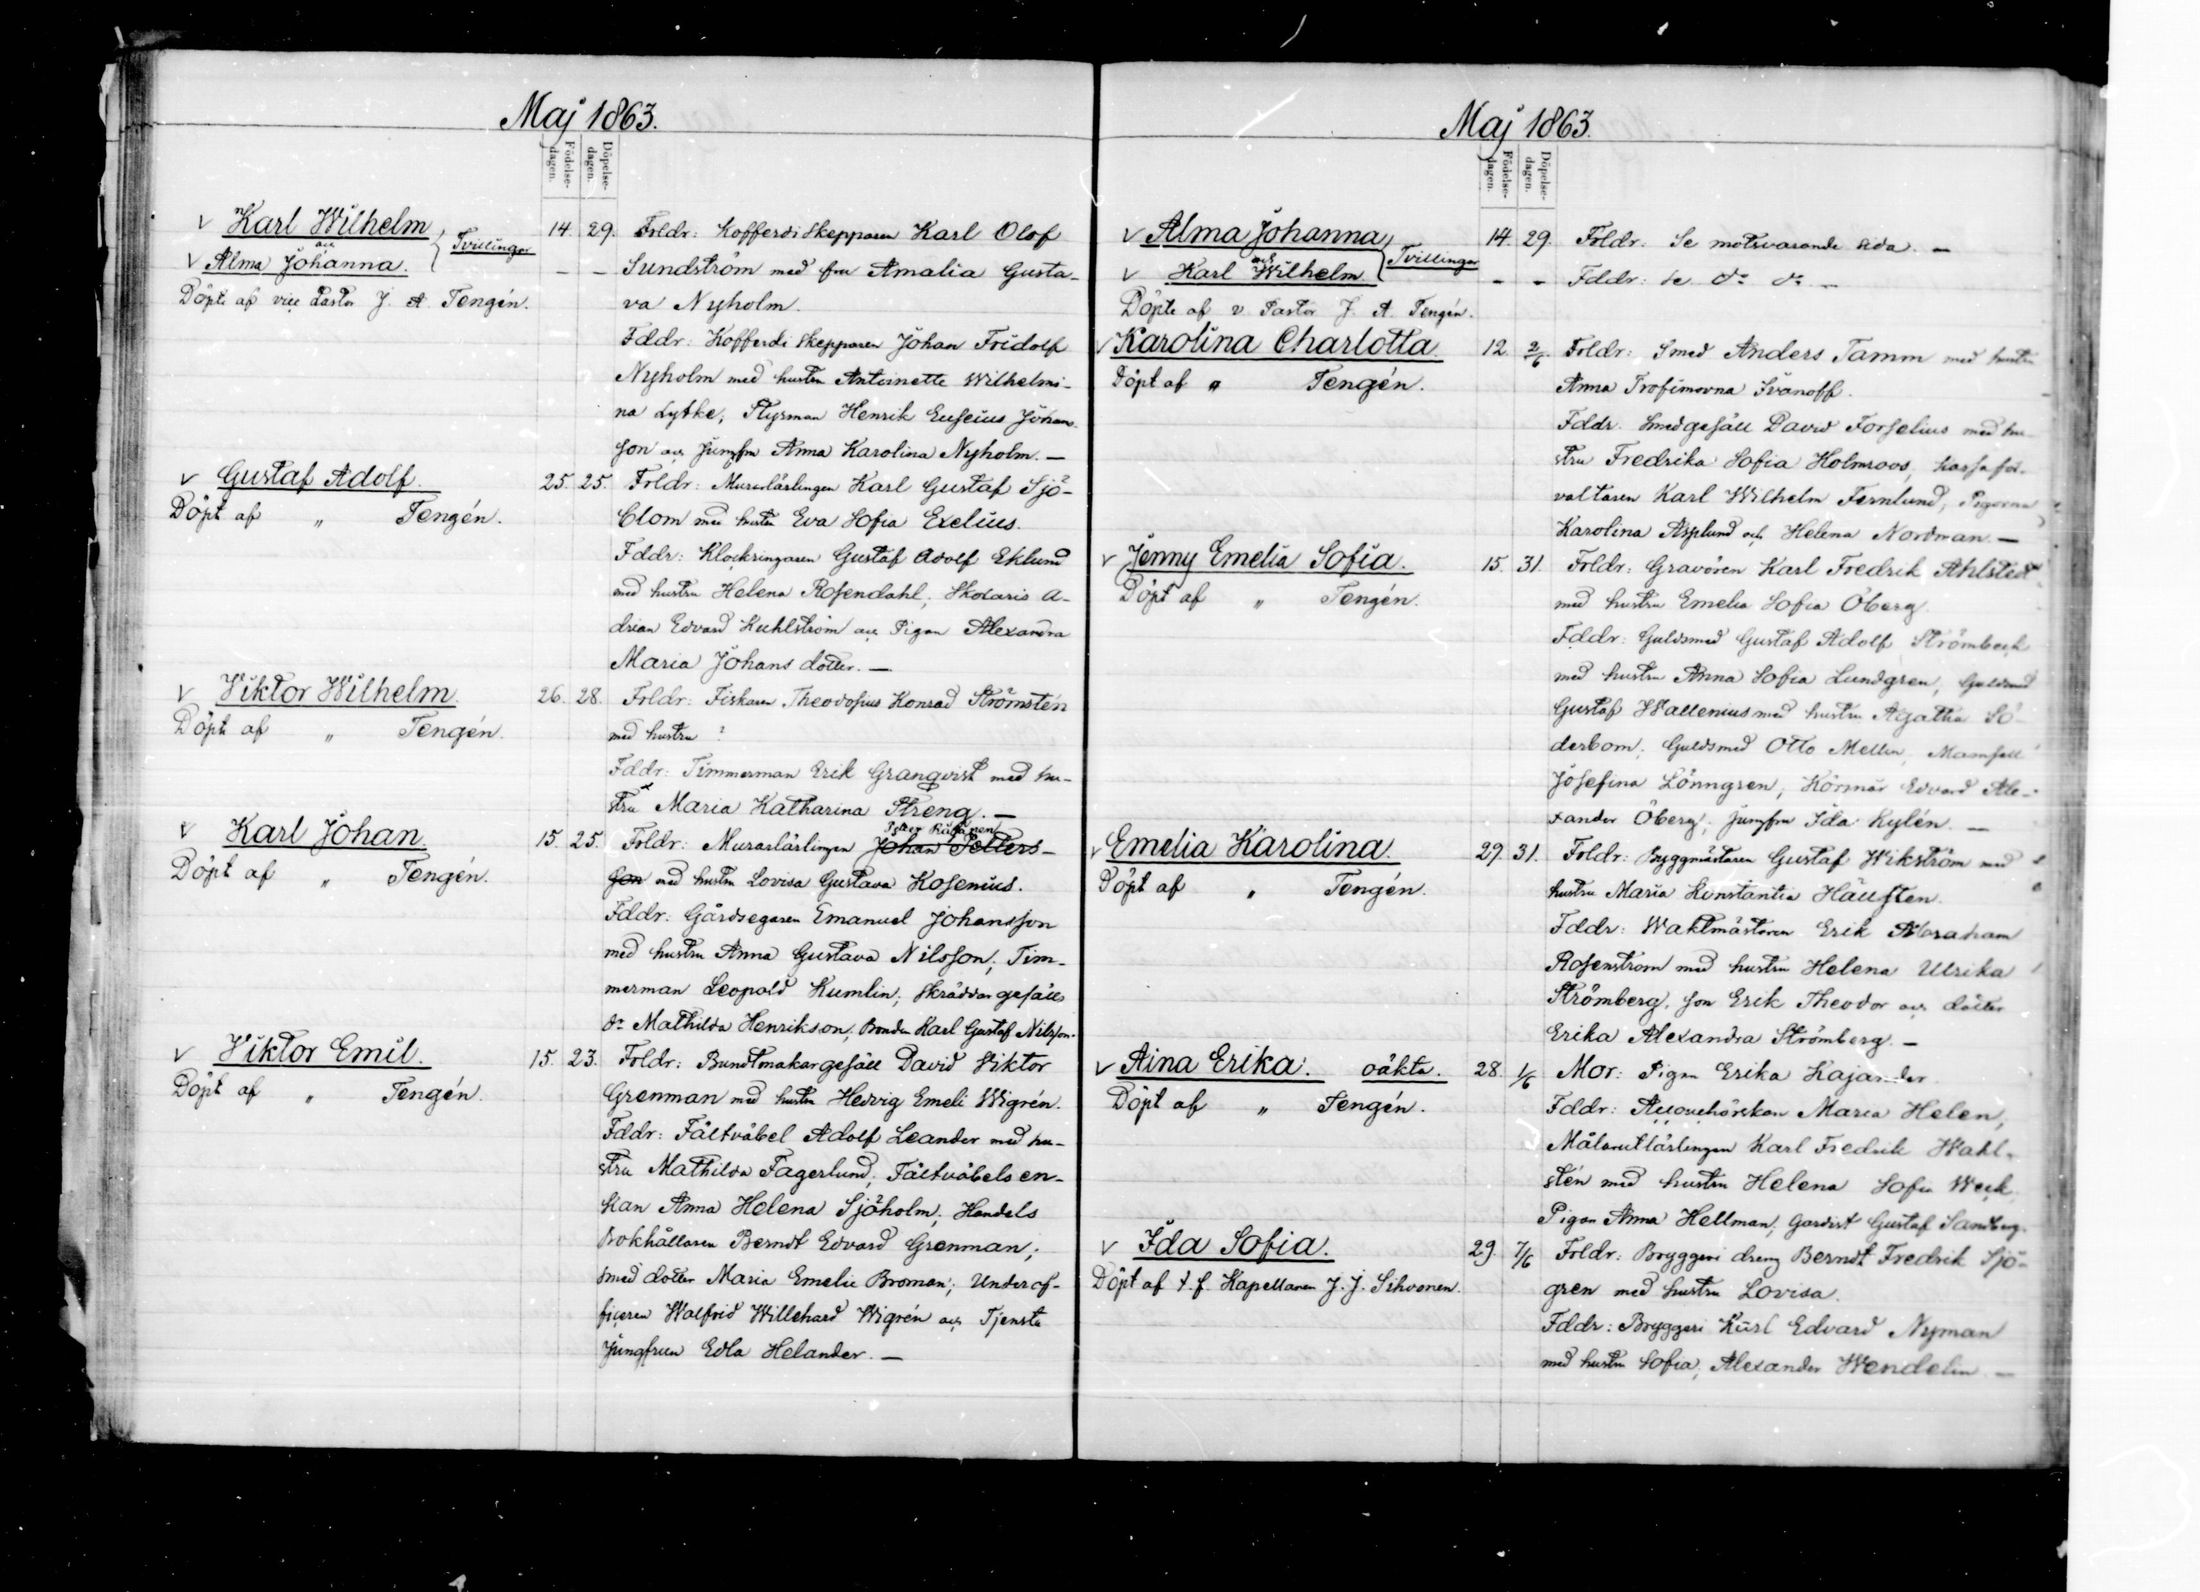 Maj 1863.
Födelse-dagen.
Döpelse-dagen.
v Karl Wilhelm
och
v Alma Johanna.
Tvillingar
Döpte af vice Pastor J. A. Tengén.
14. 29. Foldr: Kofferdi Skepparen Karl Olof
– – Sundström med fru Amalia Gusta-
va Nyholm.
Fddr: Kofferdi Skepparen Johan Fridolf
Nyholm med hustru Antoinette Wilhelmi-
na Lytke, Styrman Henrik Johans-
son och Jungfru Anna Karolina Nyholm. –
v Gustaf Adolf. 25. 25. Foldr: Murarlärlingen Karl Gustaf Sjö-
Döpt af " Tengén.
blom med hustru Eva Sofia Exelius.
Fddr: Klockringaren Gustaf Adolf Eklund
med hustru Helena Rosendahl, Skolaris A-
drian Edvard Kuhlström och Pigan Alexandra
Maria Johans dotter. –
v Viktor Wilhelm. 26. 28. Foldr: Fiskaren Theodosius Konrad Strömstén
Döpt af " Tengén.
med hustru ?
Fddr: Timmerman Erik Granqvist med hu-
stru Maria Katharina Streng. –
v Karl Johan. 15. 25. Foldr: Murarlärlingen Johan Petters-
Döpt af " Tengén.
son med hustru Lovisa Gustava Kosenius.
Fddr: Gårdsegaren Emanuel Johansson
med hustru Anna Gustava Nilsson; Tim-
merman Leopold Kumlin; Skräddar gesälls
d:r Mathilda Henrikson, Bonden Karl Gustaf Nilsson.
v Viktor Emil. 15. 23. Foldr: Buntmakargesäll David Viktor
Döpt af " Tengén.
Grenman med hustru Hedvig Emeli Wigrén.
Fddr: Fältväbel Adolf Leander med hu-
stru Mathilda Fagerlund, Fältväbels en-
kan Anna Helena Sjöholm; Handels
Bokhållaren Berndt Edvard Grenman;
smed dotter Maria Emelie Broman; Underof-
ficeren Walfrid Willehard Wigrén och Tjenste
Jungfrun Edla Helander. –
Maj 1863.
Födelse-dagen.
Döpelse-dagen.
v Alma Johanna
och
v Karl Wilhelm.
Tvillingar
Döpte af v. Pastor J. A. Tengén.
14. 29. Foldr: Se motsvarande sida. –
– – Fddr: Se d:o d:o –
v Karolina Charlotta 12. 2/6. Foldr: Smed Anders Tamm med hustru
Döpt af " Tengén.
Anna Trofimovna Ivanoff.
Fddr: Smedgesäll David Forselius med hu-
stru Fredrika Sofia Holmroos, Kassaför-
valtaren Karl Wilhelm Fernlund, Pigorna
Karolina Asplund och Helena Nordman. –
v Jenny Emelia Sofia. 15. 31. Foldr: Gravören Karl Fredrik Ahlstedt
Döpt af " Tengén.
med hustru Emelia Sofia Öberg.
Fddr: Guldsmed Gustaf Adolf Strömbeck
med hustru Anna Sofia Lundgren, Guldsmed
Gustaf Wallenius med hustru Agatha Sö-
derbom; Guldsmed Otto Mellin, Mamsell
Josefina Lönngren, Körsnär Edvard Ale-
xander Öberg; Jungfru Ida Rylén. –
v Emelia Karolina. 29. 31. Foldr: Byggmästaren Gustaf Wikström med
Döpt af " Tengén.
hustru Maria Konstantia
Fddr: Waktmästaren Erik Abraham
Rosenström med hustru Helena Ulrika
Strömberg, son Erik Theodor och dotter
Erika Alexandra Strömberg. –
v Aina Erika. oäkta. 28. 1/6 Mor: Pigan Erika Kajander
Döpt af " Tengén.
Fddr: Maria Helen,
Målarelärlingen Karl Fredrik Wahl-
stén med hustru Helena Sofia Weck
Pigan Anna Hellman, Gardist Gustaf Sandberg.
v Ida Sofia. 29. 7/6 Foldr: Bryggeri dreng Berndt Fredrik Sjö-
Döpt af t. f. Kapellanen J. J. Sihvonen.
gren med hustru Lovisa.
Fddr: Bryggeri Karl Edvard Nyman
med hustru Sofia, Alexander Wendelin –